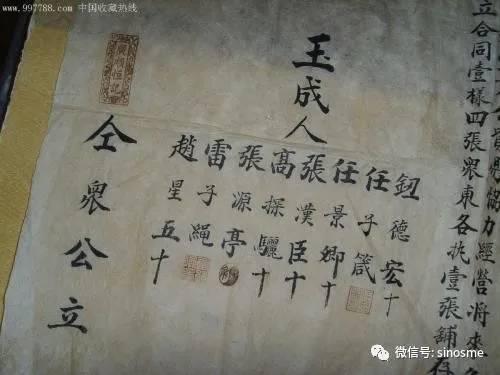 力經營將來
立合同壹樣四張衆東各执壹張舖存
玉成人
鈕德宏十
任子箴
任景卿十
張漢臣十
高探驪十
張源亭
雷子繩
趙星五十
仝衆公立
www.997788.com 中国收藏热线
微信号: sinosme